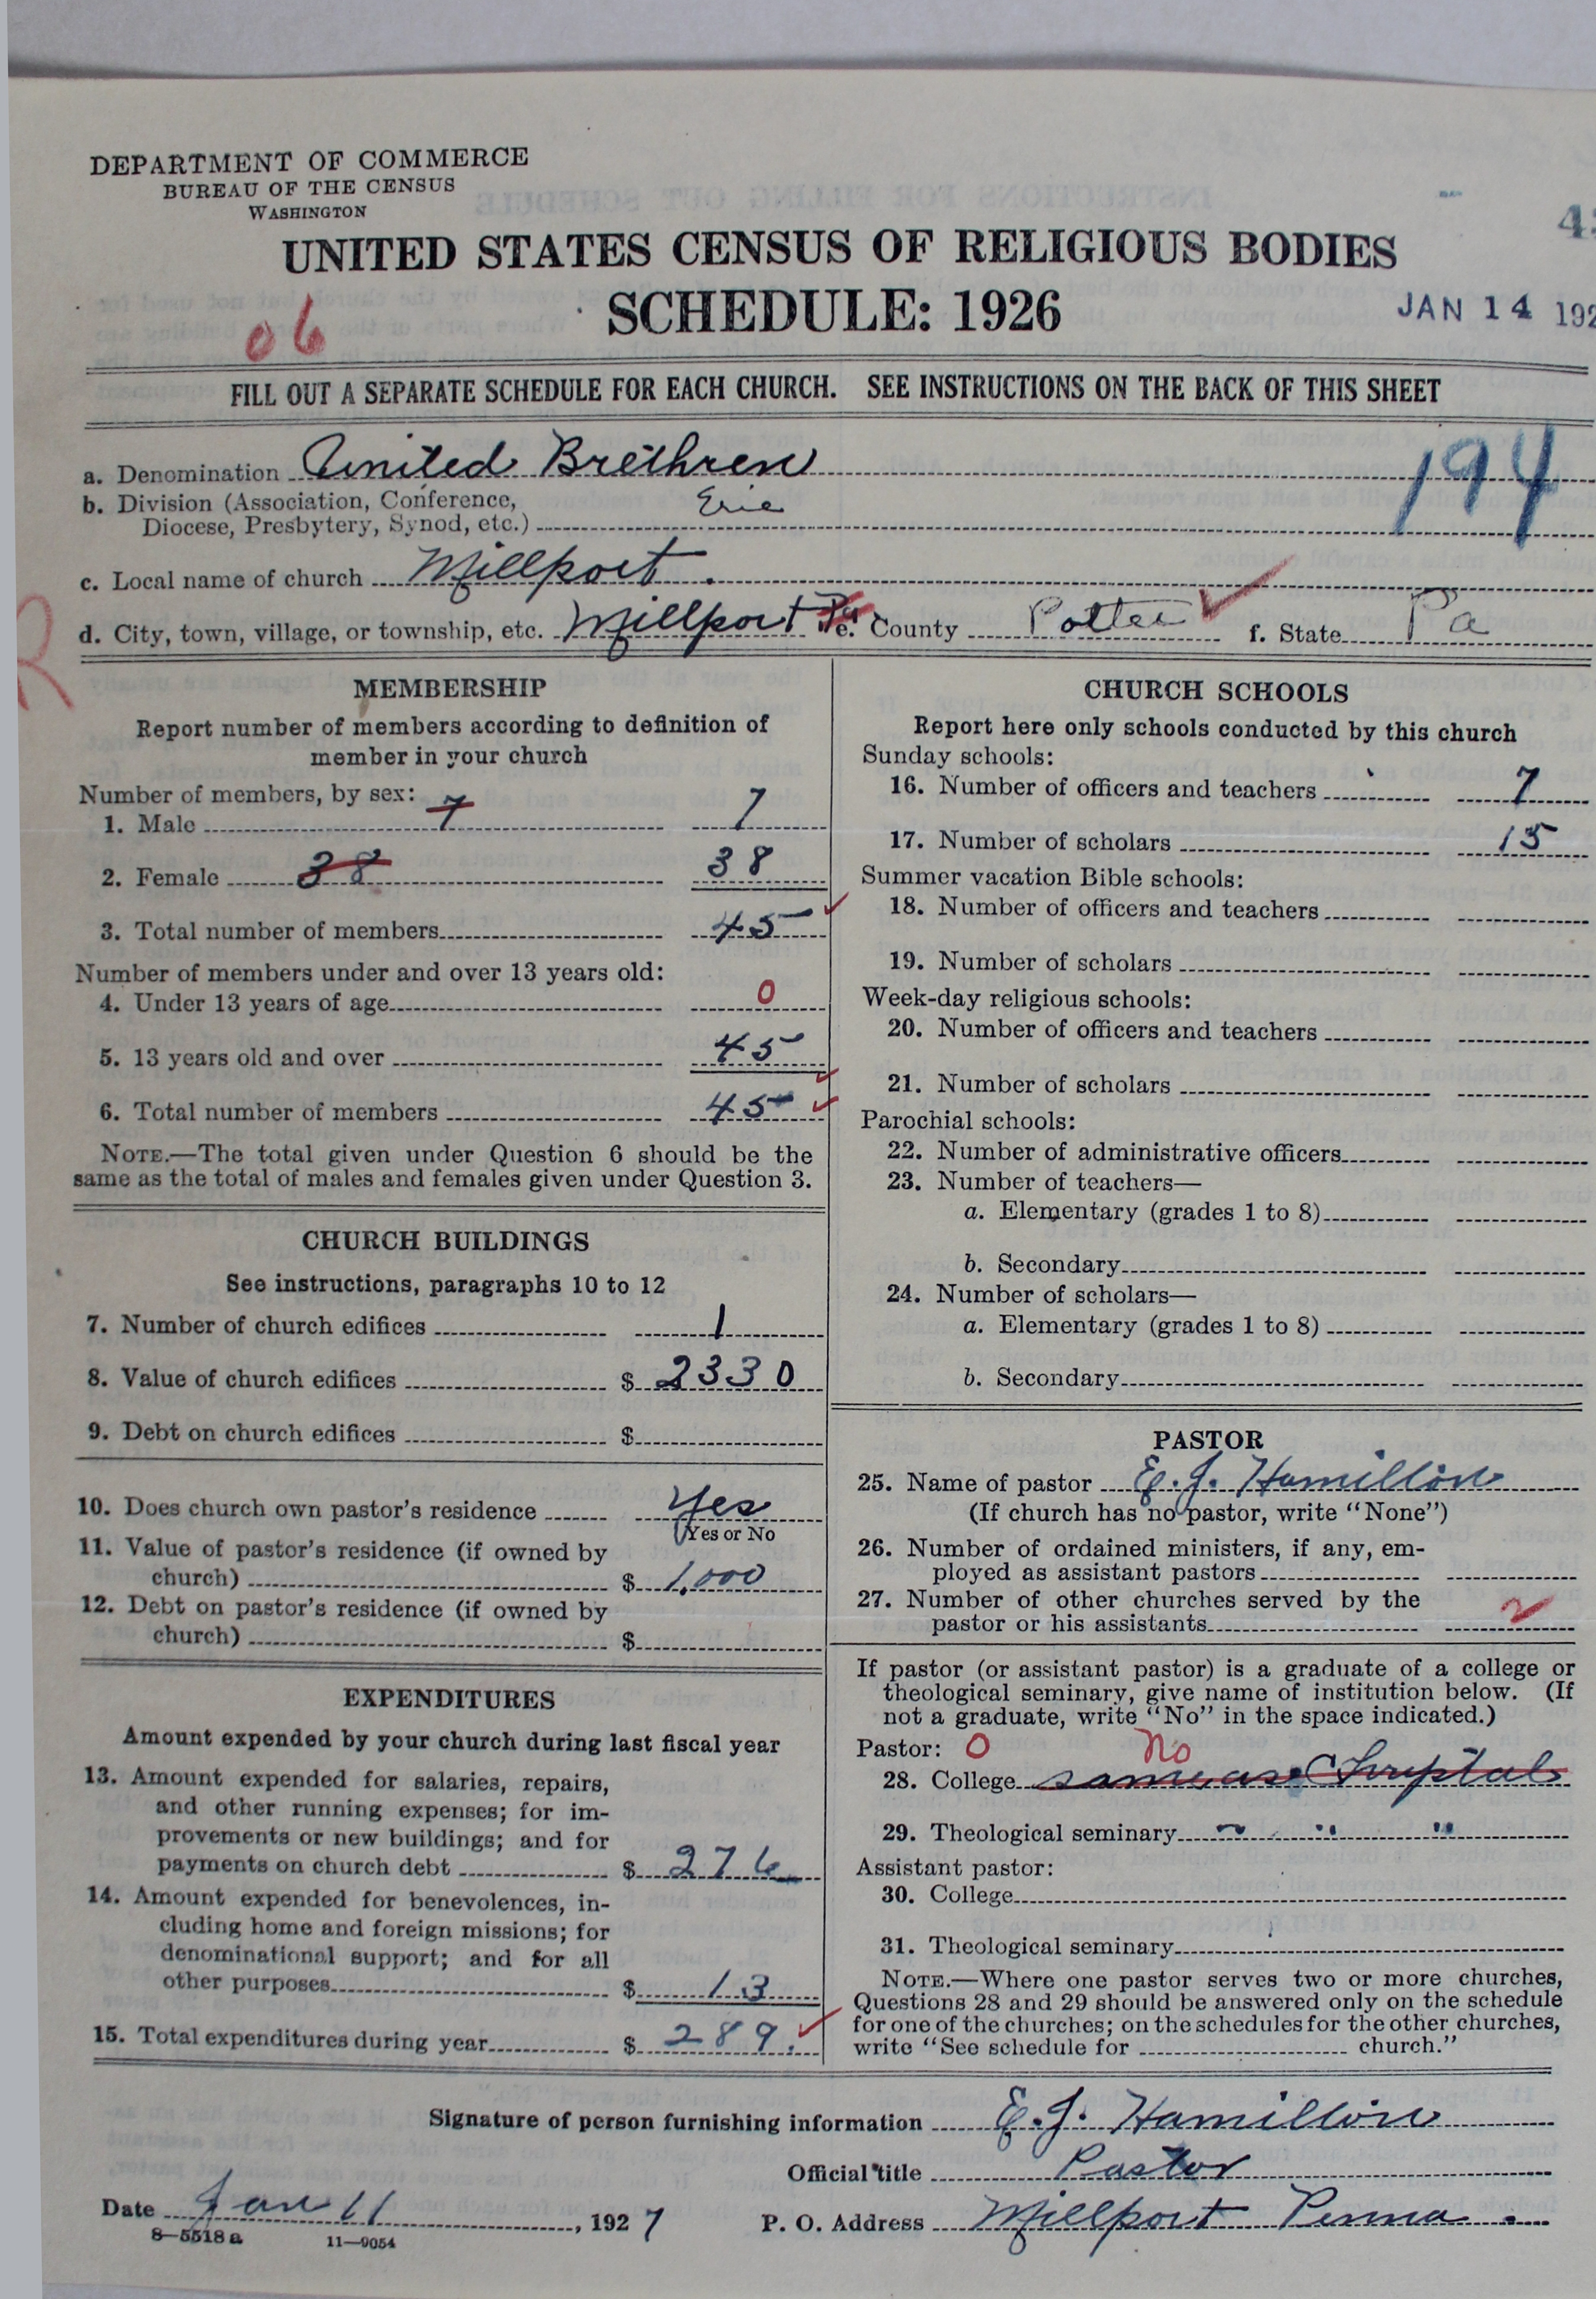 DEPARTMENT OF COMMERCE
BUREAU OF THE CENSUS
WASHINGTON
UNITED STATES CENSUS OF RELIGIOUS BODIES
SCHEDULE: 1926
JAN 14 192
06
FILL OUT A SEPARATE SCHEDULE FOR EACH CHURCH. SEE INSTRUCTIONS ON THE BACK OF THIS SHEET
194
a. Denomination United Brethren
b. Division (Association, Conference,
Diocese, Presbytery, Synod, etc.) Erie
c. Local name of church Millport.
d. City, town, village, or township, etc. Millport Pa e. County Potter f. State Pa
R
MEMBERSHIP
Report number of members according to definition of
member in your church
Number of members, by sex:
1. Male 7 7
2. Female 38 38
3. Total number of members 45
Number of members under and over 13 years old:
4. Under 13 years of age 0
5. 13 years old and over 45
6. Total number of members 45
NOTE.—The total given under Question 6 should be the
same as the total of males and females given under Question 3.
CHURCH BUILDINGS
See instructions, paragraphs 10 to 12
7. Number of church edifices 1
8. Value of church edifices $ 2330
9. Debt on church edifices $
10. Does church own pastor's residence Yes
(Yes or No
11. Value of pastor's residence (if owned by
church) $ 1,000
12. Debt on pastor's residence (if owned by
church) $
EXPENDITURES
Amount expended by your church during last fiscal year
13. Amount expended for salaries, repairs,
and other running expenses; for im-
provements or new buildings; and for
payments on church debt $ 276
14. Amount expended for benevolences, in-
cluding home and foreign missions; for
denominational support; and for all
other purposes $ 13
15. Total expenditures during year $ 289.
CHURCH SCHOOLS
Report here only schools conducted by this church
Sunday schools:
16. Number of officers and teachers 7
17. Number of scholars 15
Summer vacation Bible schools:
18. Number of officers and teachers
19. Number of scholars
Week-day religious schools:
20. Number of officers and teachers
21. Number of scholars
Parochial schools:
22. Number of administrative officers
23. Number of teachers—
a. Elementary (grades 1 to 8)
b. Secondary
24. Number of scholars—
a. Elementary (grades 1 to 8)
b. Secondary
PASTOR
25. Name of pastor E. J. Hamilton
(If church has no pastor, write "None")
26. Number of ordained ministers, if any, em-
ployed as assistant pastors
27. Number of other churches served by the
pastor or his assistants 2
If pastor (or assistant pastor) is a graduate of a college or
theological seminary, give name of institution below. (If
not a graduate, write "No" in the space indicated.)
Pastor: 0 No
28. College same as
29. Theological seminary " " "
Assistant pastor:
30. College
31. Theological seminary
NOTE.—Where one pastor serves two or more churches,
Questions 28 and 29 should be answered only on the schedule
for one of the churches; on the schedules for the other churches,
write "See schedule for church."
Signature of person furnishing information E. J. Hamilton
Official title Pastor
Date Jan 11, 1927 P. O. Address Millport Penna.
8—5518 a 11—9054